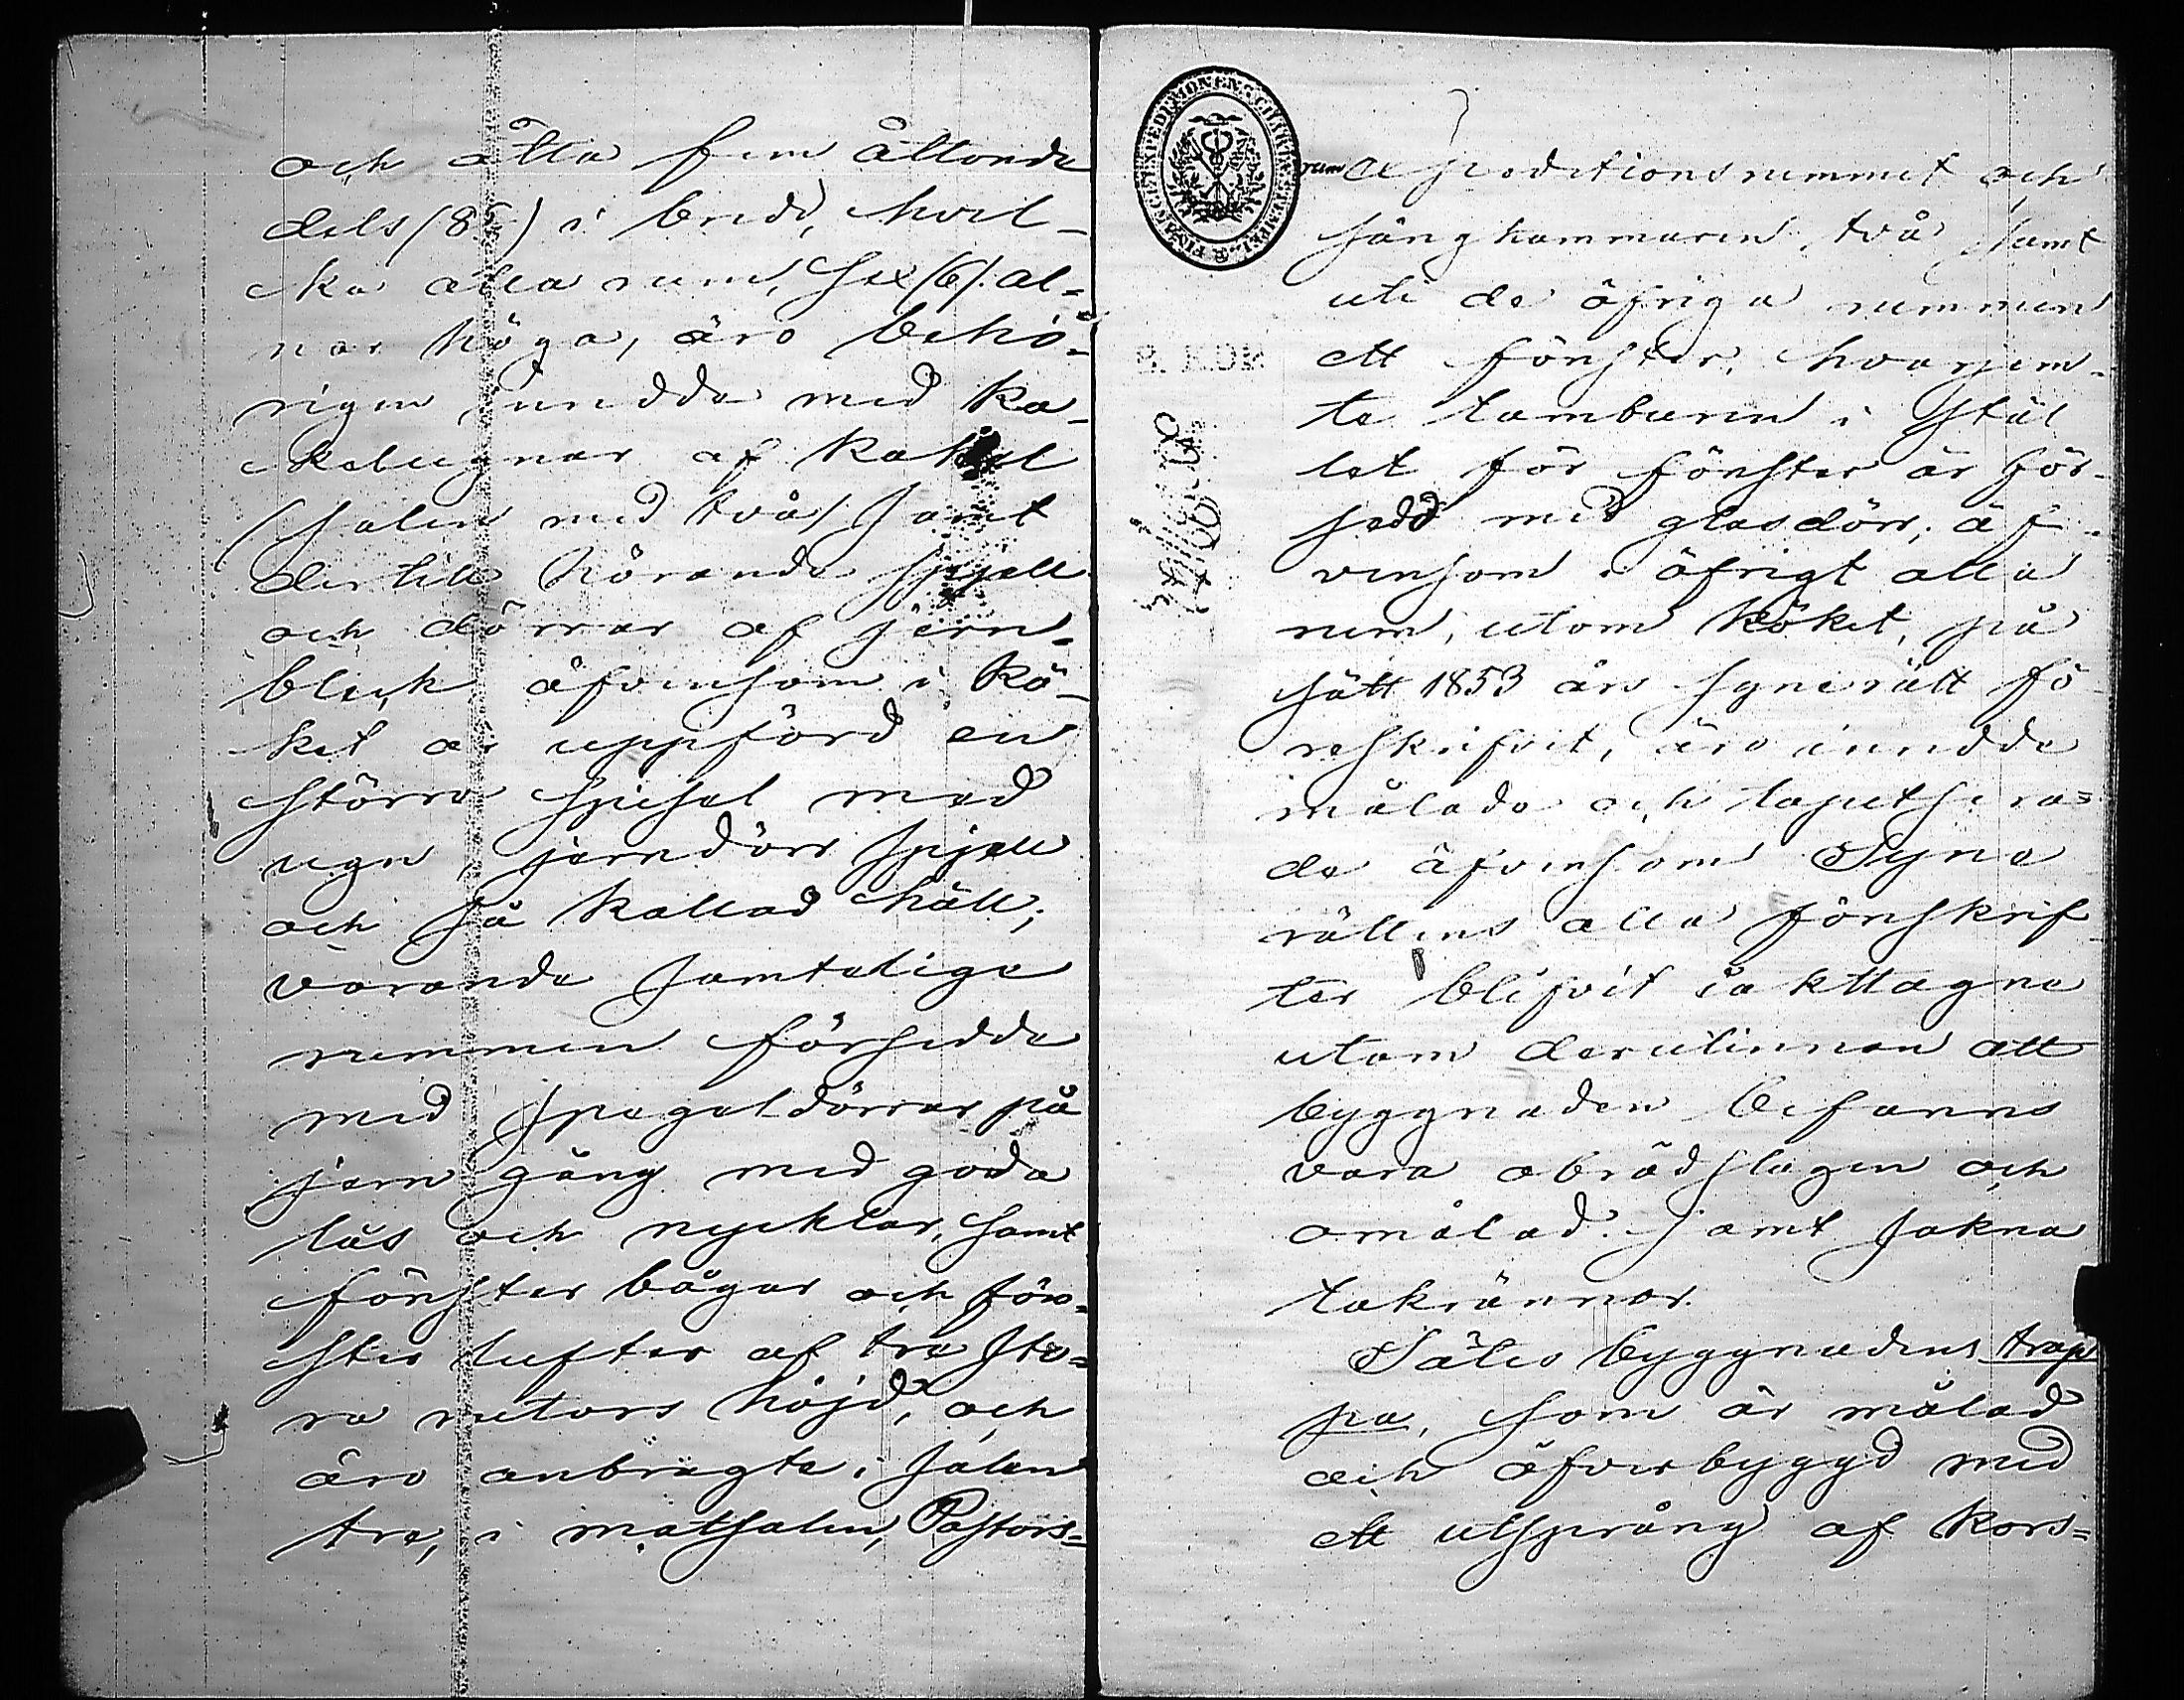 och åtta fem åttonde
dels (8 5/8) i bredd, hvil-
ka alla rum, sex (6) al-
nar höga, äro behö-
rigen inredda med ka-
kelugnar af kakel
(salen med två) samt
dertill hörande spjell
och dörrar af jern-
bleck äfvensom i kö-
ket är uppförd en
större spisel med
ugn, jerndörr spjell
och så kallad häll;
varande samteliga
rummen försedda
med spegeldörrar på
jern gång med goda
lås och nycklar, samt
fönster bågar och fön-
ster lufter af tre sto-
ra rutors höjd, och
äro anbragte i salen
tre, i matsalen, Pastors-
expeditionsrummet och
sängkammaren två samt
uti de öfriga rummen
ett fönster, hvarjem-
te tamburen i stäl
let för fönster är för-
sedd med glasdörr; äf-
vensom i öfrigt alla
rum, utom köket, på
sätt 1853 års synerätt fö-
reskrifvit, äro inredda
målade och tapetsera-
de äfvensom Syne
rättens alla förskrif
ter blifvit iakttagne
utom derutinnan att
byggnaden befanns
vara obrädslagen och
omålad samt sakna
takrännor.
Såleo byggnadens trap
pa, som är målad
och öfverbyggd med
ett utsprång af kors-